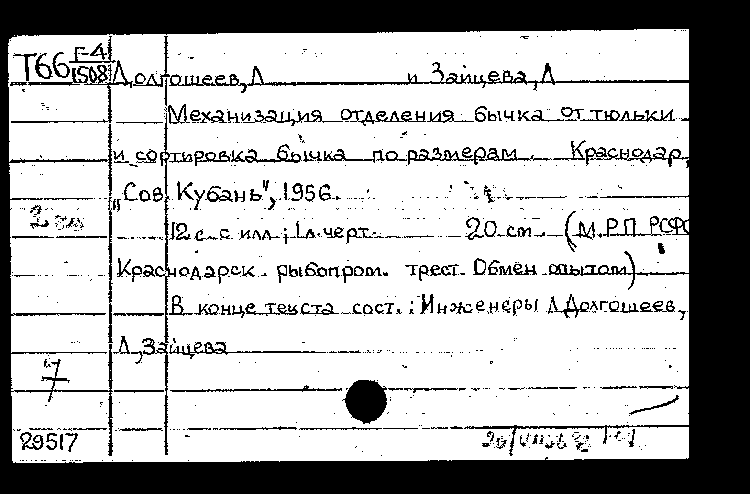 Т66 Г-4
1508
Долгошеев, Л и Зайцева, Л
Механизация отделения бычка от тюльки
и сортировка бычка по размерам. Краснодар,
„Сов. Кубань", 1956.
12 с. с илл.; 1 л. черт. 20 см. (М.Р.П РСФС
Краснодарск. рыбопром. трест. Обмен опытом)
В конце текста сост.: Инженеры Л Долгошеев,
Л, Зайцева
29517